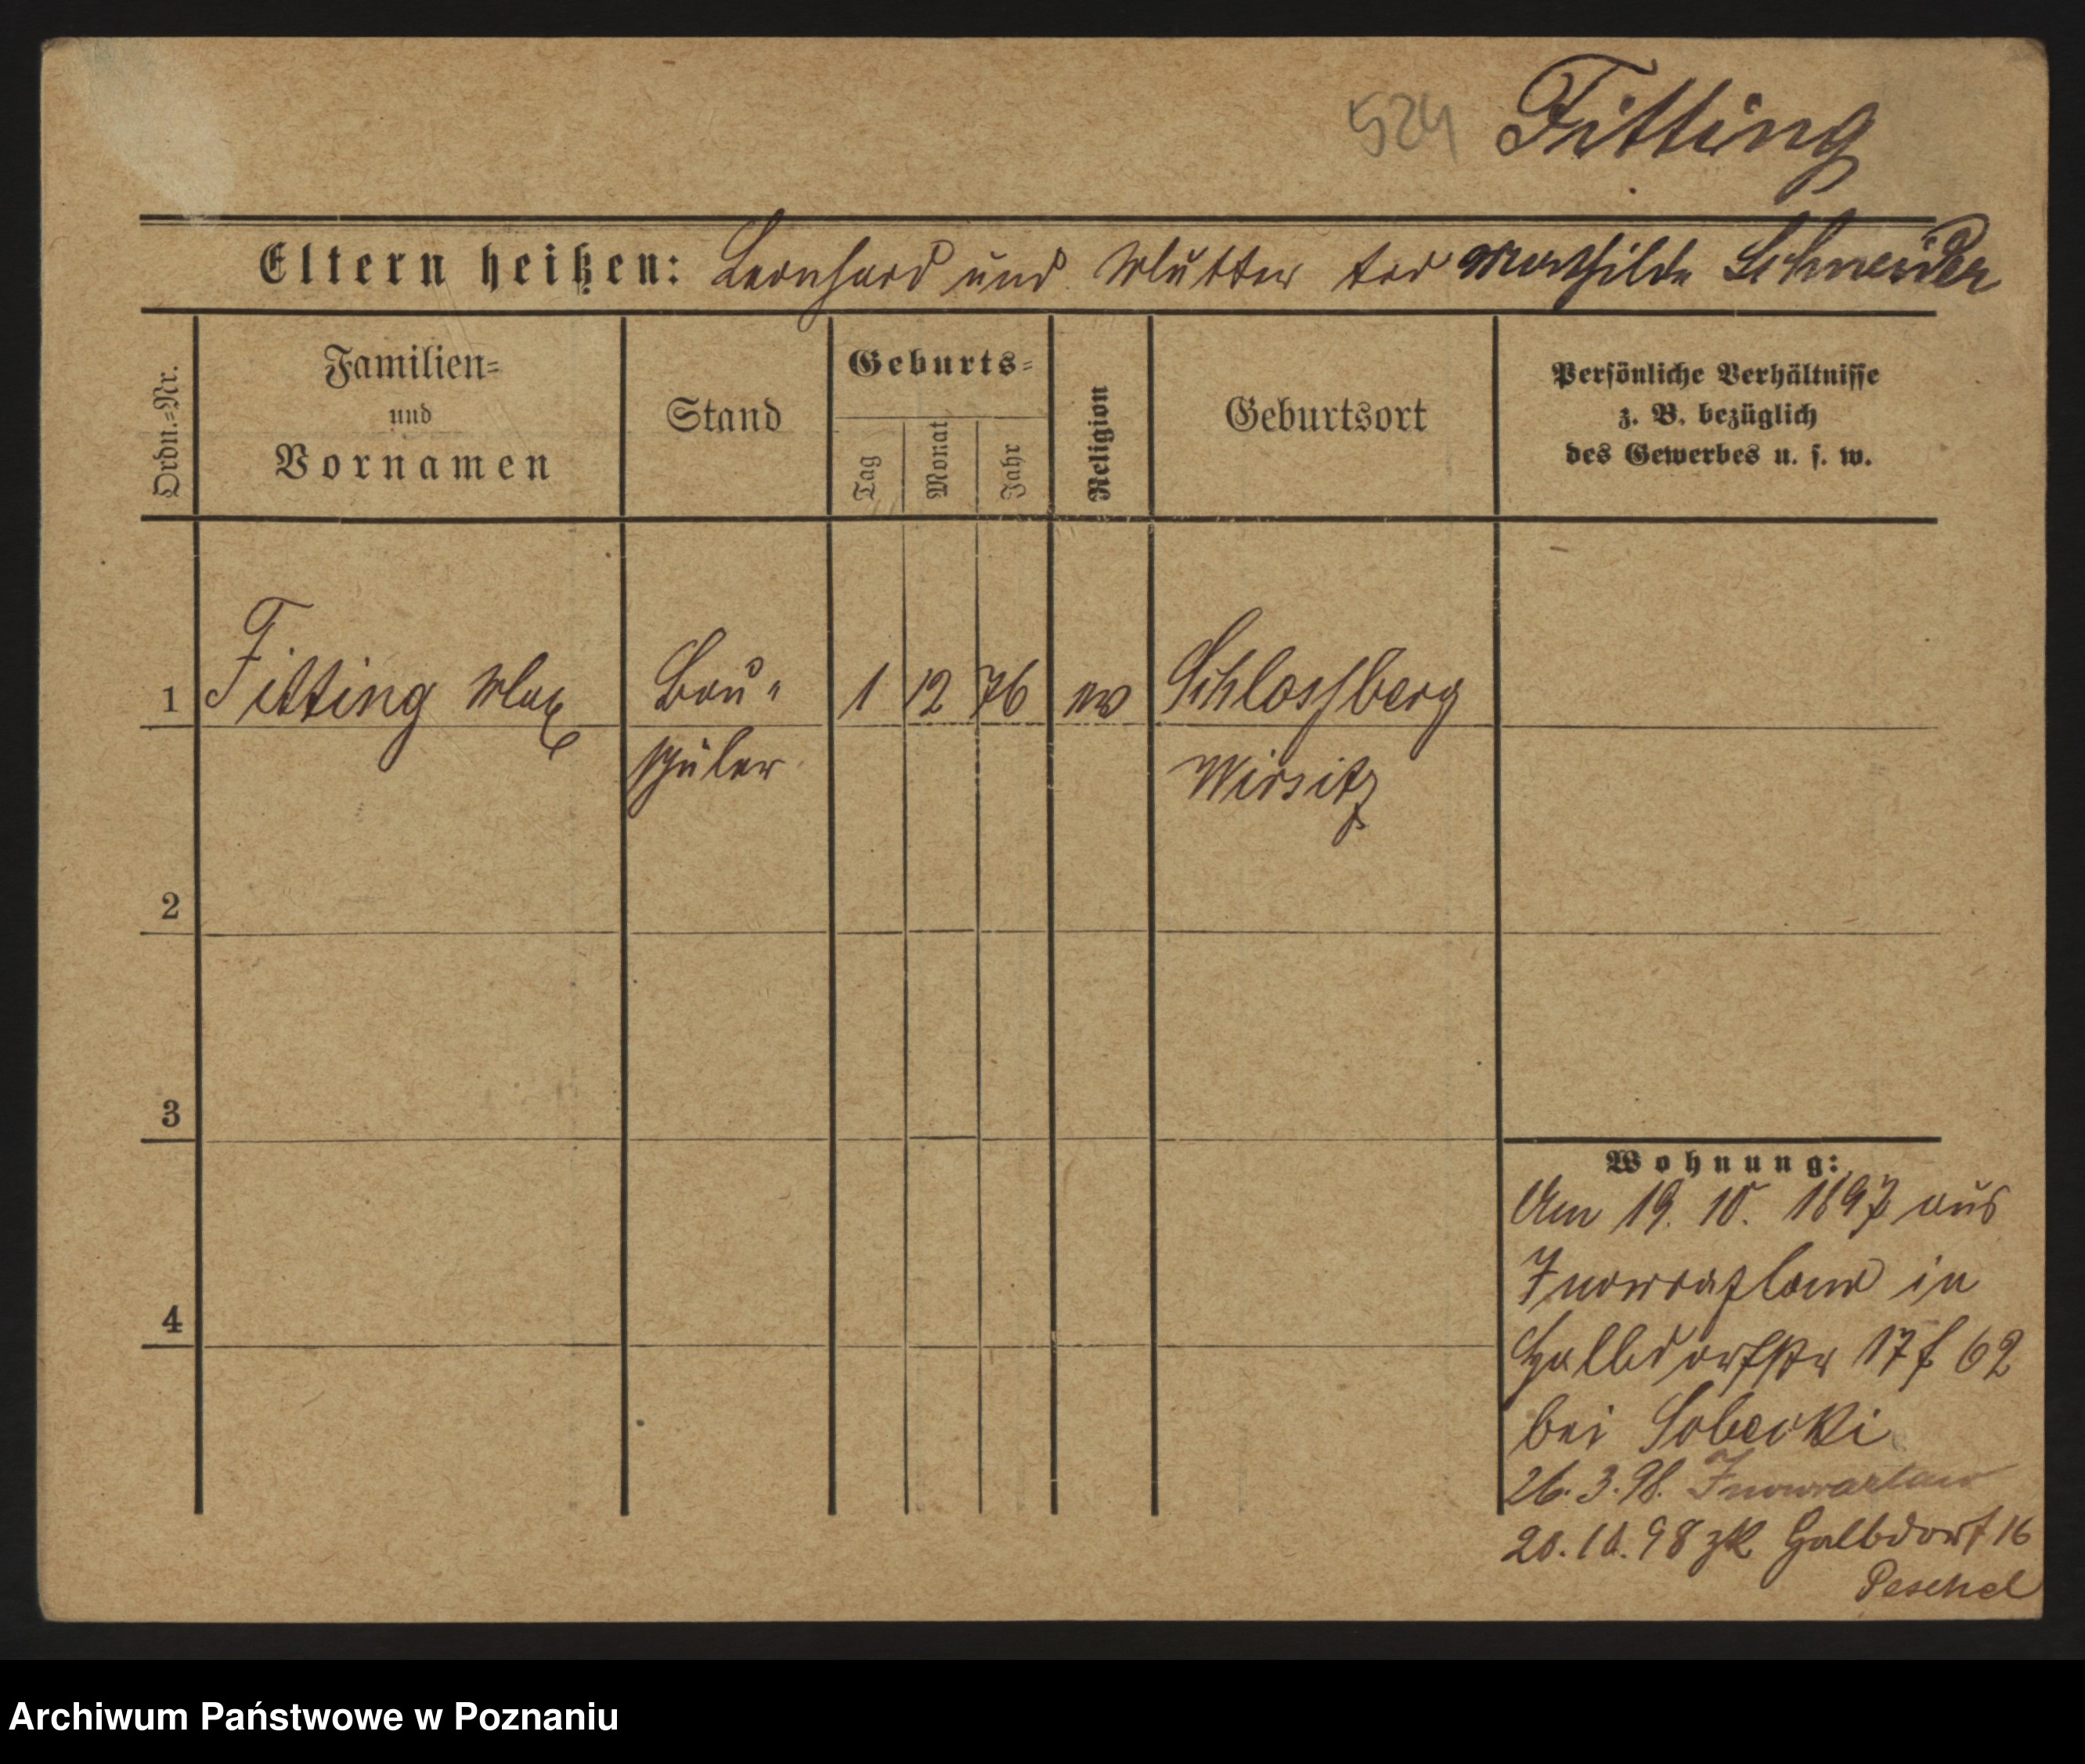 524 Fitting
Eltern heißen: Leonhard und Mutter tod Mathilde Schneider
Ordn.=Nr.
Familien=
und
Vornamen
Stand
Geburts=
Tag
Monat
Jahr
Religion
Geburtsort
Persönliche Verhältnisse
z. B. bezüglich
des Gewerbes u. s. w.
1 Fitting Max Bau= 1 12 76 ev Schlossberg
schüler Wirsitz
2
3
4
Wohnung:
Am 19. 10. 1897 aus
Inowrazlaw in
Halbdorfstr 17 f 62
bei Sobecki
26.3.98. Inowrazlaw
20.10.98 zk Halbdorf 16
Peschel
Archiwum Państwowe w Poznaniu